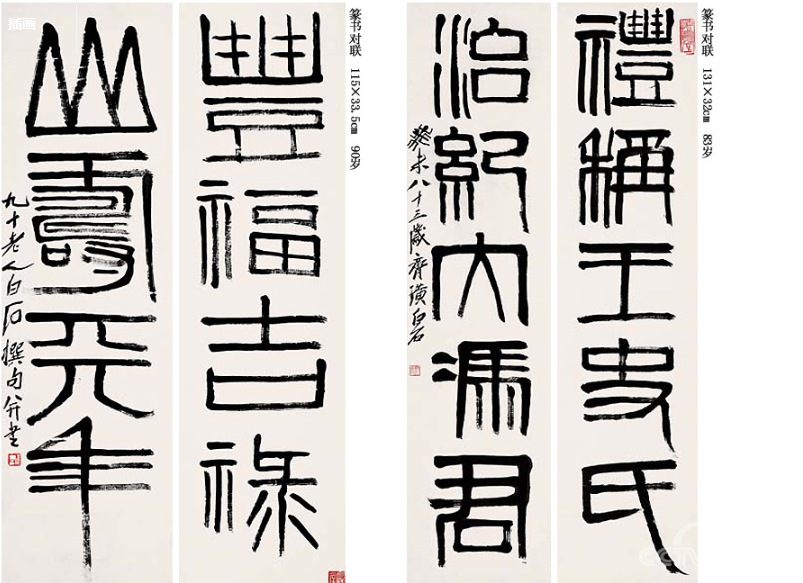 篆书对联 131×32cm 83岁
禮稱王史氏
治紀大馮君
癸未八十三歲齊璜白石
篆书对联 115×33.5cm 90岁
豐福吉祿
山壽元年
九十老人白石撰句并書
插画
CCTV